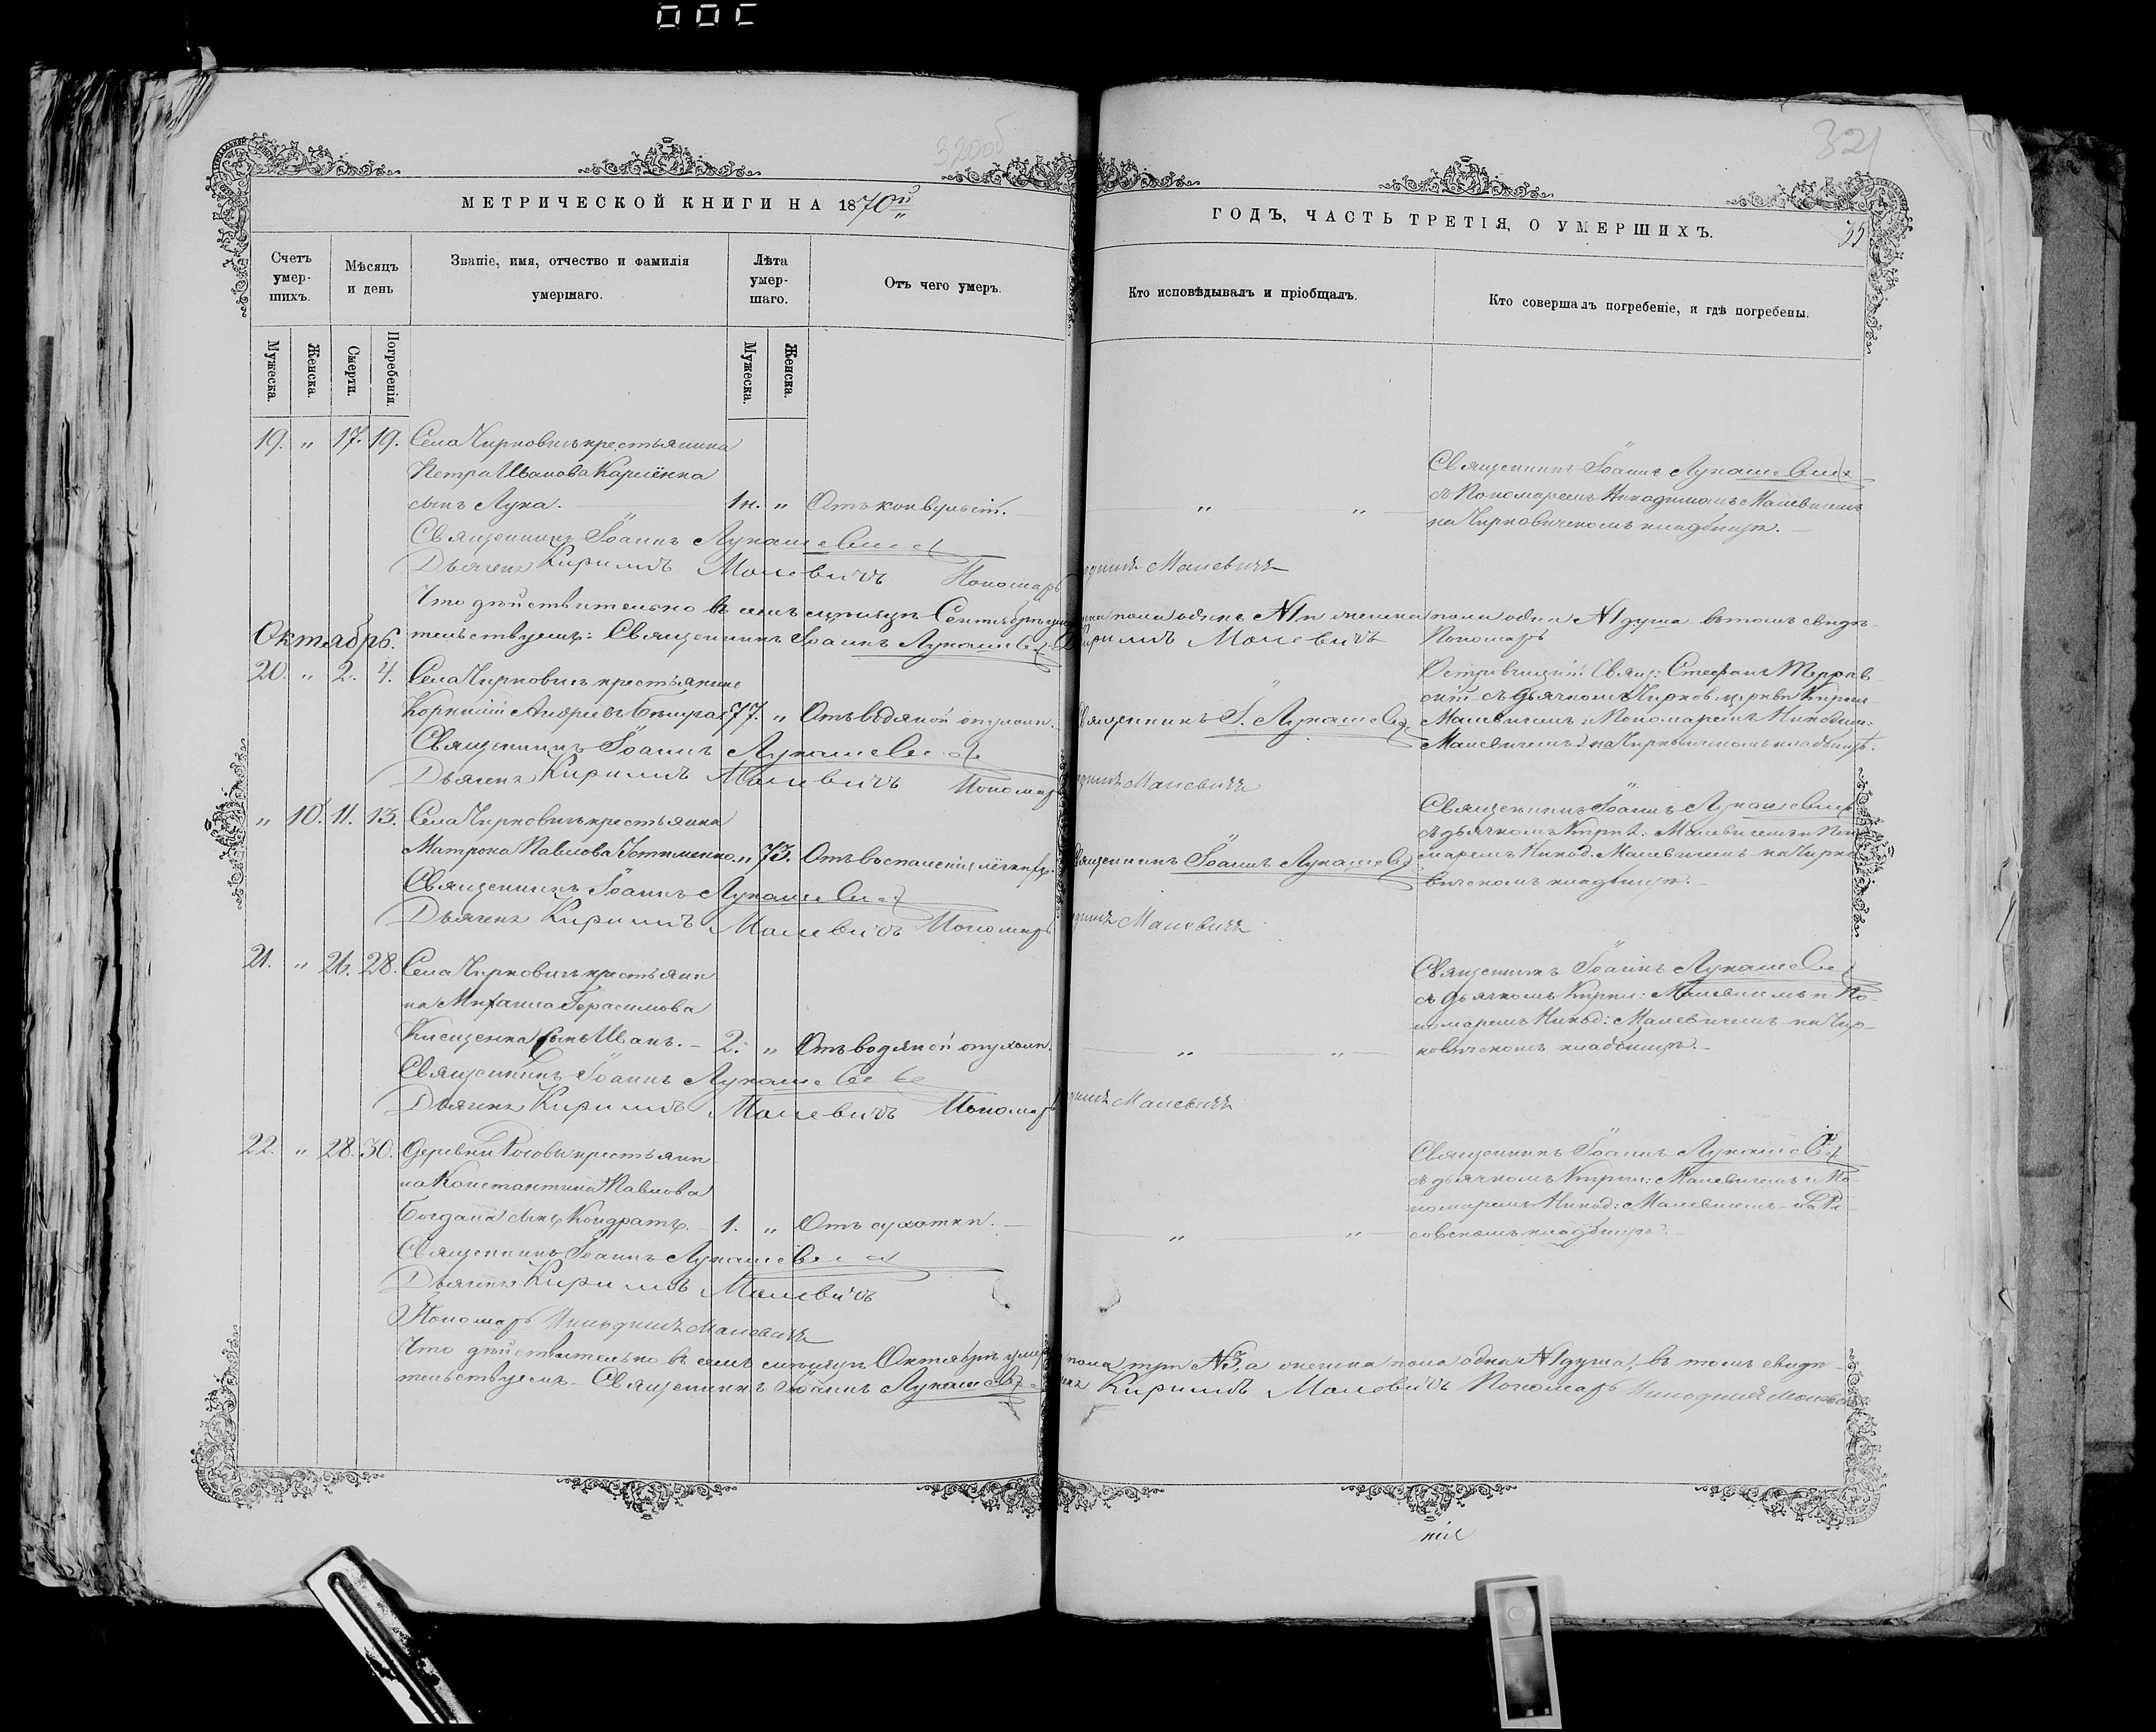 320об
321
МЕТРИЧЕСКОЙ КНИГИ НА 1870й
ГОДЪ, ЧАСТЬ ТРЕТІЯ, О УМЕРШИХЪ.
35
Счетъ умершихъ.
Мѣсяцъ и день
Званіе, имя, отчество и фамилія умершаго.
Лѣта умершаго.
Отъ чего умеръ.
Кто исповѣдывалъ и пріобщалъ.
Кто совершалъ погребеніе, и гдѣ погребены.
Мужеска.
Женска.
Смерти.
Погребенія.
Мужеска.
Женска.
19. " 17. 19. Села Чирковичъ крестьянина
Петра Иванова
сынъ Лука. 1н. " Отъ конвульсіи. " "
Священникъ Іоаннъ Лукашевичъ
съ Пономаремъ Никодимомъ Малевичемъ
на Чирковичскомъ кладбищѣ.
Священникъ Іоаннъ Лукашевичъ
Дьячекъ Кириллъ Малевичъ Пономарь Малевичъ
Что дѣйствительно въ семъ мѣсяцѣ Сентябрѣ пола одинъ №1 и женска пола одна №1 душа въ томъ свидѣ-
тельствуемъ: Священникъ Іоаннъ Лукашевичъ Кириллъ Малевичъ Пономарь
Октябрь.
20. " 2. 4. Села Чирковичъ крестьянинъ
Корнилій Андреевъ 77. " Отъ водяной опухоли. Священникъ І. Лукашевичъ
Свящ: Стефанъ
съ дьячкомъ Чирков: церкви Кирил:
Малевичемъ и Пономаремъ Никодим:
Малевичемъ на Чирковичскомъ кладбищѣ.
Священникъ Іоаннъ Лукашевичъ
Дьячекъ Кириллъ Малевичъ Пономарь Малевичъ
" 10. 11. 13. Села Чирковичъ крестьянка
Матрона Павлова " 73. Отъ воспаленія легкихъ. Священникъ Іоаннъ Лукашевичъ
Священникъ Іоаннъ Лукашевичъ
съ дьячкомъ Кирил: Малевичемъ и Поно-
маремъ Никод. Малевичемъ на Чирко-
вичскомъ кладбищѣ.
Священникъ Іоаннъ Лукашевичъ
Дьячекъ Кириллъ Малевичъ Пономарь Малевичъ
21. " 26. 28. Села Чирковичъ крестьяни-
на Михаила Герасимова
сынъ Иванъ. 2. " Отъ водяной опухоли. " "
Священникъ Іоаннъ Лукашевичъ
съ дьячкомъ Кирил: Малевичемъ и По-
номаремъ Никод: Малевичемъ на Чир-
ковичскомъ кладбищѣ.
Священникъ Іоаннъ Лукашевичъ
Дьячекъ Кириллъ Малевичъ Пономарь Малевичъ
22. " 28. 30. Деревни крестьяни-
на Константина Павлова
Богдана сынъ Кондратъ. 1. " Отъ сухотки. " "
Священникъ Іоаннъ Лукашевичъ
съ дьячкомъ Кирил: Малевичемъ и По-
номаремъ Никод: Малевичемъ
кладбищѣ.
Священникъ Іоаннъ Лукашевичъ
Дьячекъ Кириллъ Малевичъ
Пономарь Никодимъ Малевичъ
Что дѣйствительно въ семъ мѣсяцѣ Октябрѣ пола три №3, а женска пола одна №1 душа, въ томъ свидѣ-
тельствуемъ. Священникъ Іоаннъ Лукашевичъ Кириллъ Малевичъ Пономарь Никодимъ Малевичъ